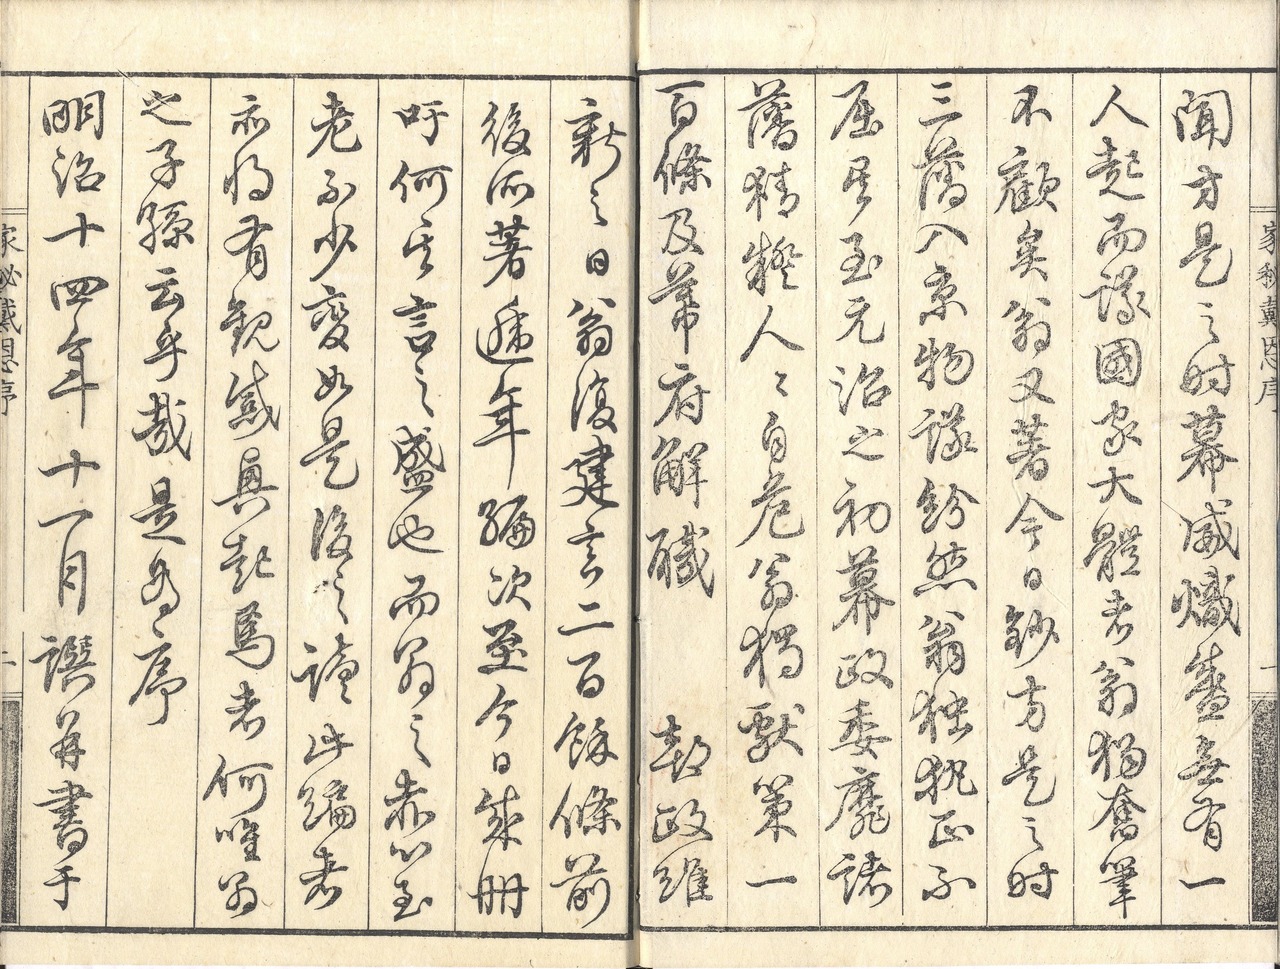 聞方是之时幕威熾盛無有一
人起而議國家大體者翁獨奮筆
不顧矣翁又著今日鈔方是之时
三藩入京物議紛然翁独執正不
屈焉至元治之初幕政委靡諸
藩猜疑人〻自危翁獨獻策一
百條及幕府解職 朝政維
新之日翁復建言二百餘條前
後所著逓年編次至今日成册
吁何其言之盛也而翁之赤心至
老不少變如是後之讀此編者
亦将有観感興起焉者何唯翁
之子孫云乎哉是為序
明治十四年十一月譔并書于
家秘戴恩序
一
家秘戴恩序
二